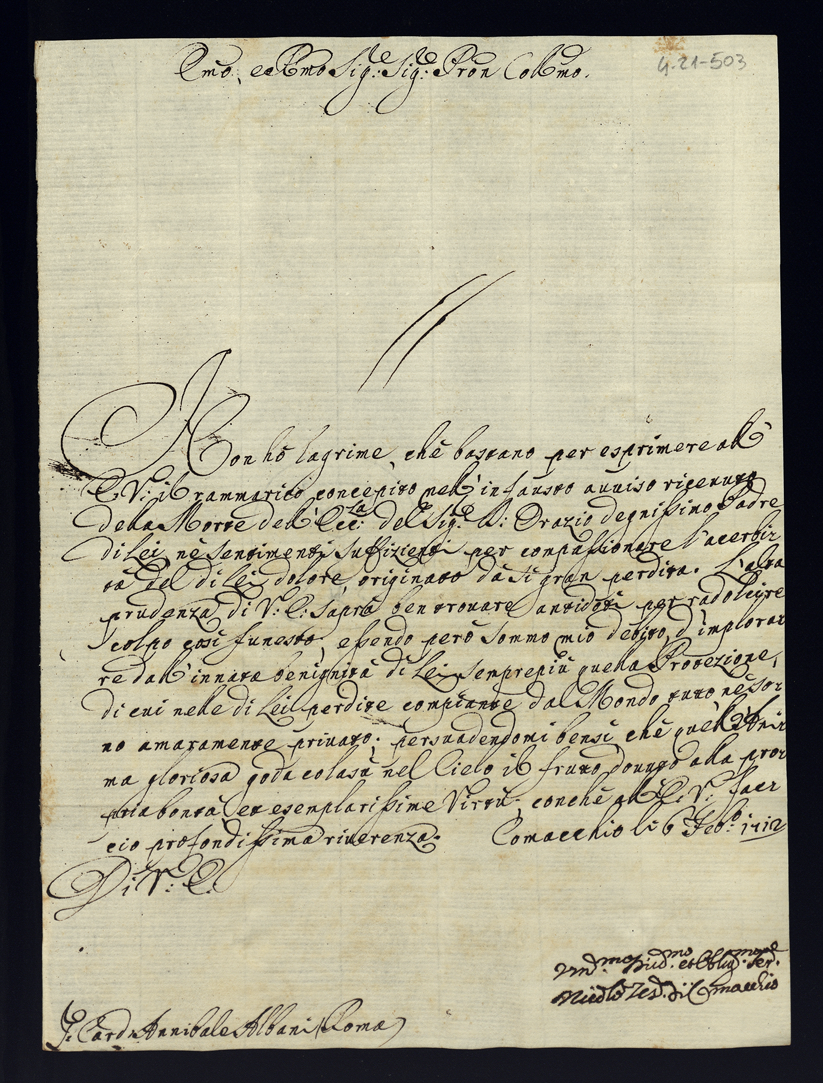 Emo: et Rmo Sig:re Sig:re Pron Collmo.
4-21-503
Non hò lagrime, che bastano per esprimere all'
E. V: il rammarico concepito nell' infausto avviso ricevuto
della Morte dell' Ecc:za del Sig:re D: Orazio degnissimo Padre
di Lei, nè sentimenti suffizienti per compassionare l'acerbi-
tà del di Lei dolore, originato dà sì gran perdita. L'alta
prudenza di V: E: saprà ben trovare antidoti per radolcire
colpo così funesto, essendo però sommo mio debito, d'implora-
re dall' innata benignità di Lei semprepiù quella Protezione,
di cui nelle di Lei perdite compiante dal Mondo tutto nè so-
no amaramente privato; persuadendomi bensì che quell' Ani-
ma gloriosa goda colasù nel Cielo il frutto dovuto alla pro-
pria bontà et esemplarissime Virtù; conche all' E: V: fac-
cio profondissima riverenza. Comacchio li 6 Feb:o 1712
Di V: E:
Um:mo Dev:mo et Oblig:mo Ser:re
Nicolò Ves: di Comacchio
Card: Annibale Albani (Roma)